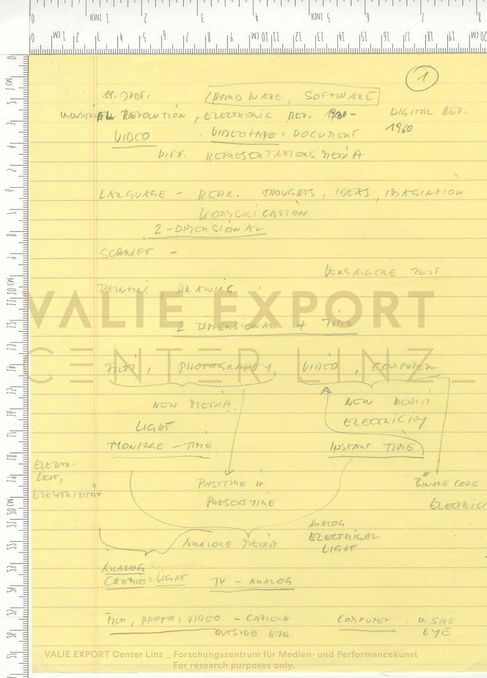 1
(HARDWARE, SOFTWARE)
INDUSTRIAL REVOLUTION, ELECTRONIC REV. 1930- DIGITAL REV.
VIDEO VIDEOTAPE = DOCUMENT 1960
DIFF. REPRESENTATIONS MEDIA
LANGUAGE - REPR. THOUGHTS, IDEAS, IMAGINATION
KOMMUNICATION
2-DIMENSIONAL
SCHRIFT -
PAINTING DRAWING
VALIE EXPORT
2 DIMENSIONAL + TIME
CENTER LINZ_
FILM, PHOTOGRAPHY, VIDEO, COMPUTER
NEW MEDIA NEW MEDIA
LIGHT ELECTRICITY
MONTAGE - TIME INSTANT TIME
ELECTR.
LIGHT, PASTTIME IN BINARE CODE
PRESENT TIME
ANALOG
ANALOGE MEDIA ELECTRICAL
LIGHT
ANALOG
CHEMIE = LIGHT TV - ANALOG
FILM, PHOTO, VIDEO - CAMERA COMPUTER INSIDE
OUTSIDE EYE EYE
VALIE EXPORT Center Linz _ Forschungszentrum für Medien- und Performancekunst
For research purposes only.